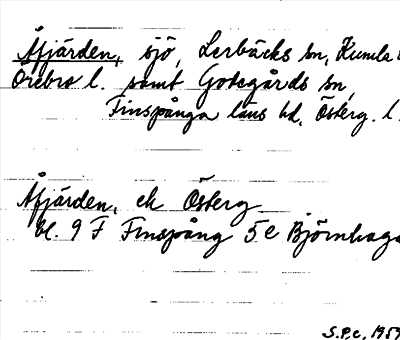 Åfjärden, sjö, Lerbäcks sn, Kumla
Örebro l. samt Godegårds sn,
Finspånga läns hd, Österg. l.
Åfjärden, ek Österg
bl. 9 F Finspång 5e Björnhaga
S.P.c. 1959